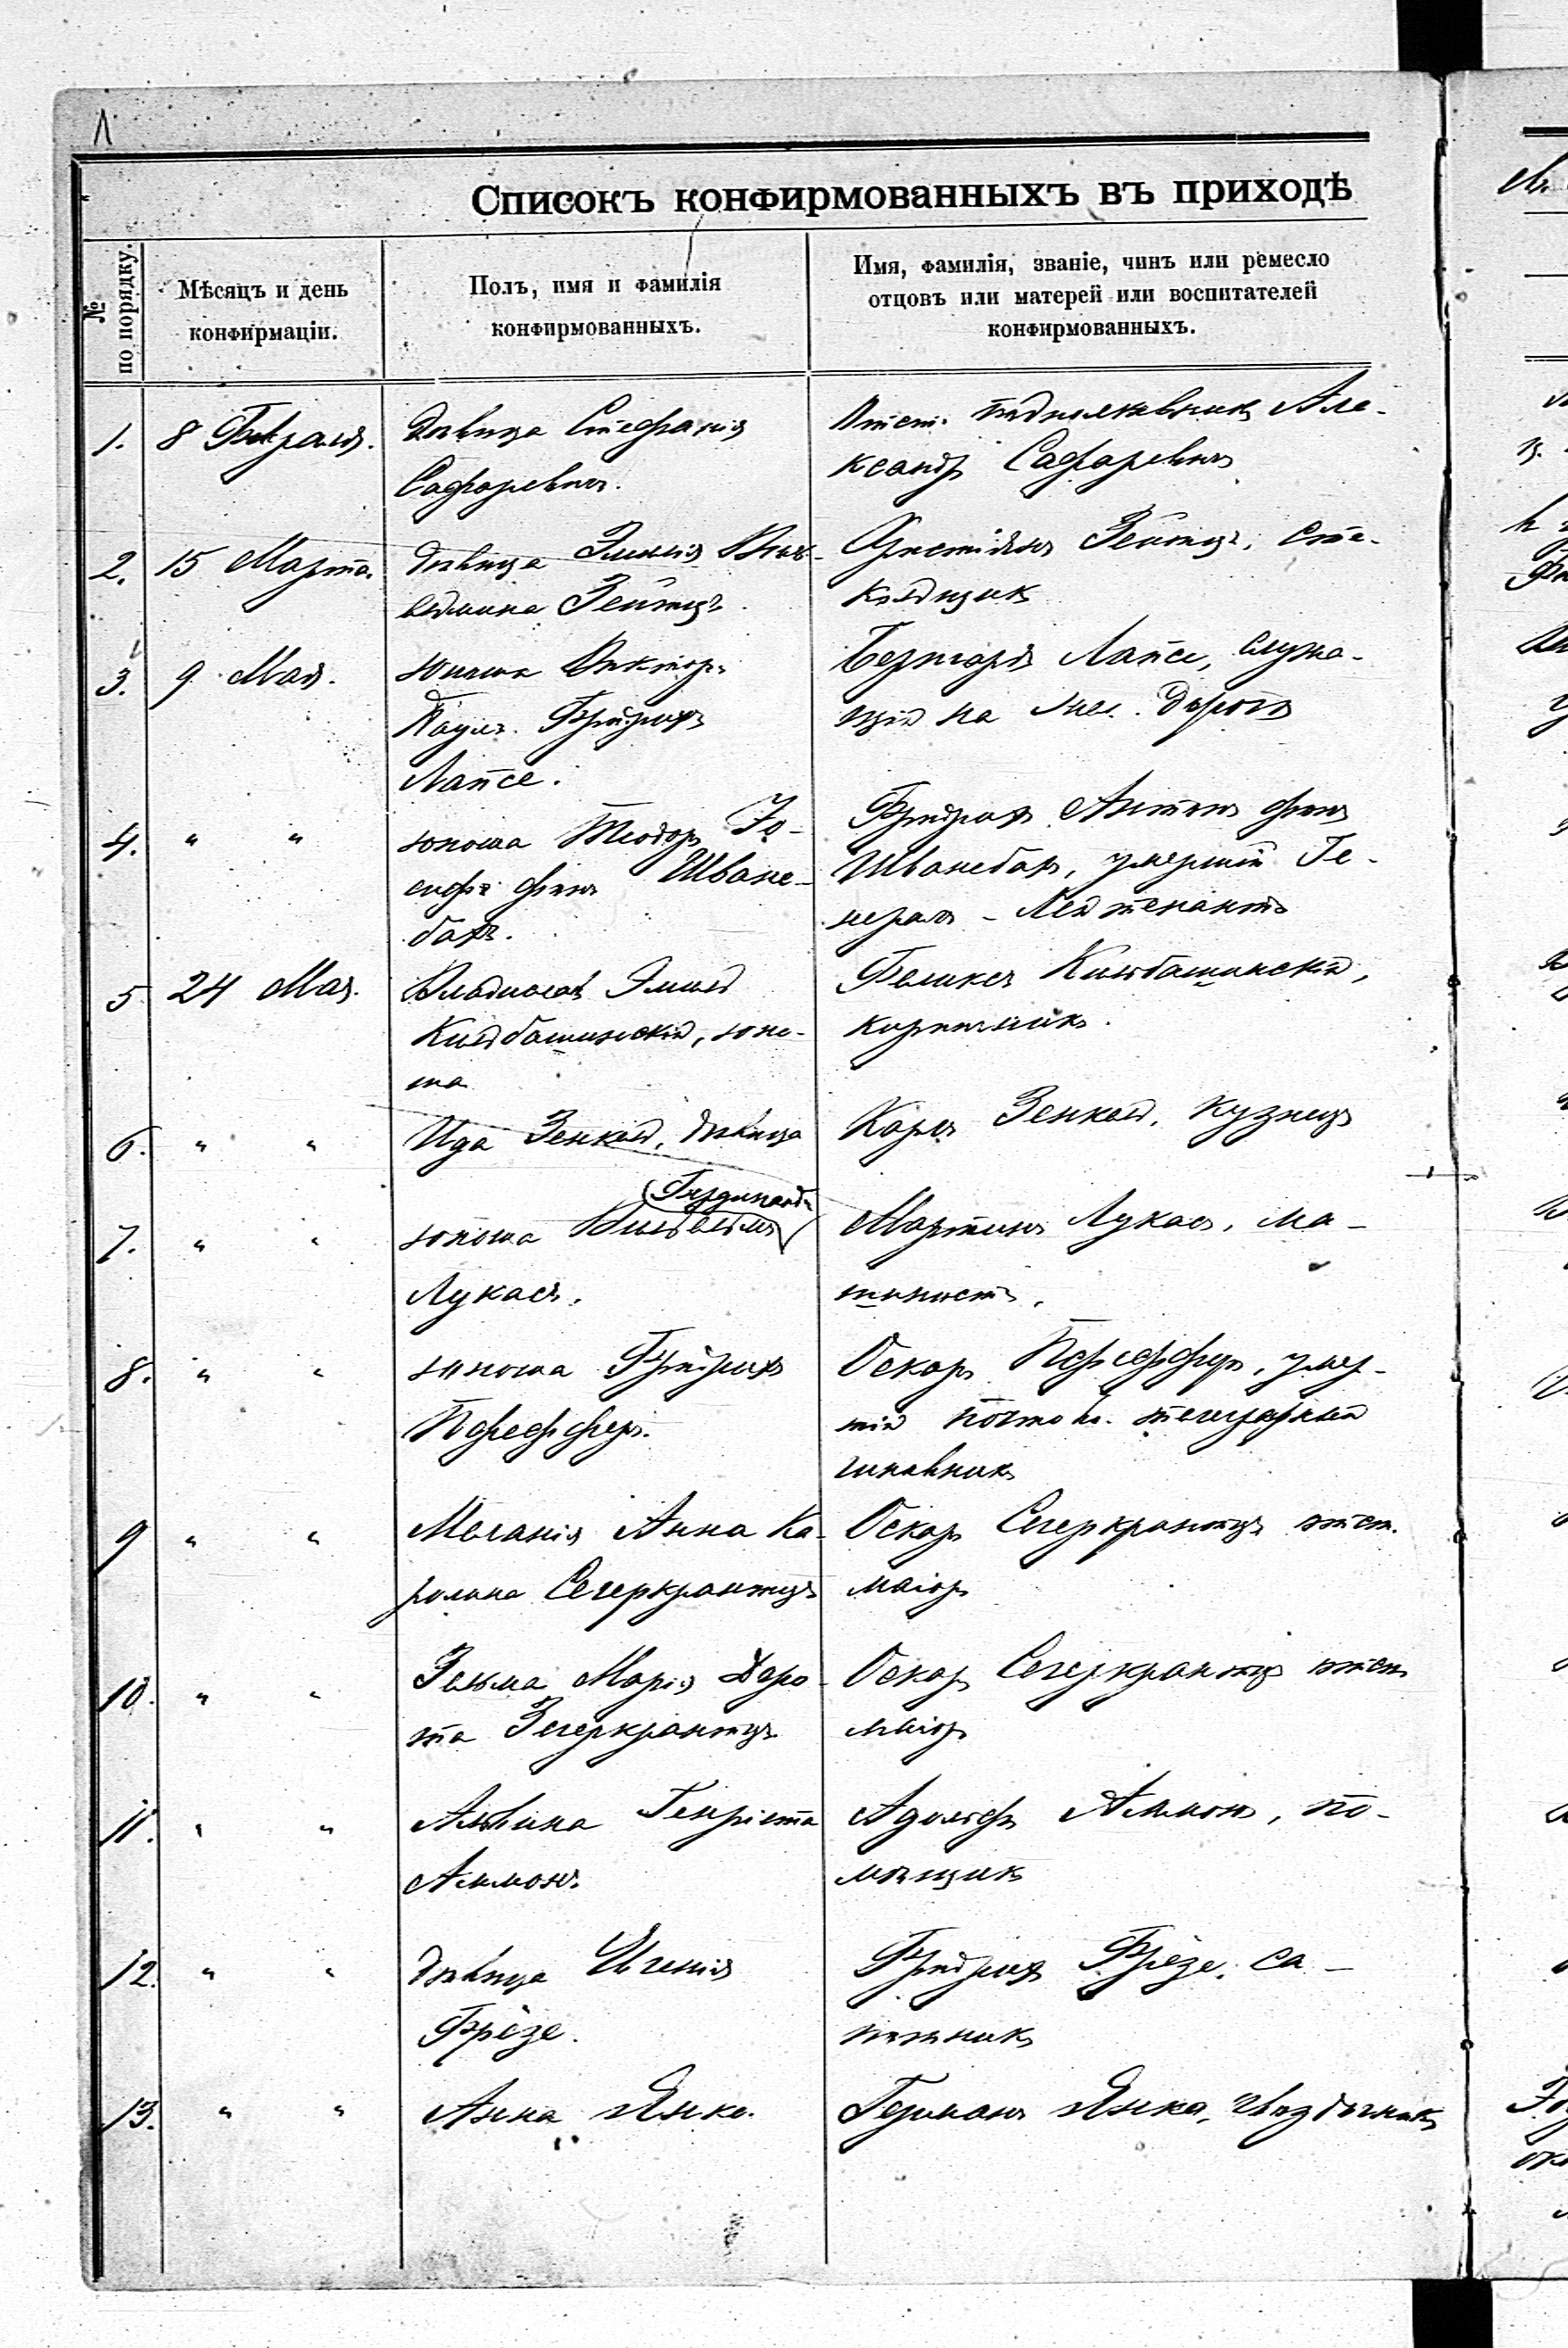 Списокъ конфирмованныхъ въ приходѣ
№ по порядку.
Мѣсяцъ и день
конфирмаціи.
Полъ, имя и фамилія
конфирмованныхъ.
Имя, фамилія, званіе, чинъ или ремесло
отцовъ или матерей или воспитателей
конфирмованныхъ.
1. 8 Февраля. дѣвица Стефанія
Сафаревичъ.
Отст. подполковникъ Але-
ксандръ Сафаревичъ
2. 15 Марта. дѣвица Эмилія Виль-
гельмина Зейтцъ.
Христіанъ Зейтцъ, сте-
кольщикъ
3. 9 Мая. юноша Викторъ
Паулъ Фридрихъ
Лапсе.
Бернгардъ Лапсе, служа-
щій на жел. дорогѣ
4. " " юноша Теодоръ Іо-
сифъ фонъ Шване-
бахъ.
Фридрихъ Антонъ фонъ
Шванебахъ, умершій Ге-
нералъ-Лейтенантъ
5. 24 Мая. Владиславъ Эмилъ
Кильбашинскій, юно-
ша
Феликсъ Кильбашинскій,
6. " " Ида Зенкель, дѣвица
Карлъ Зенкель, кузнецъ
7. " " юноша Вильгельмъ
Фердинандъ
Лукасъ.
Мартинъ Лукасъ, ма-
шинистъ.
8. " " юноша Фридрихъ
Пфефферъ.
Оскаръ Пфефферъ, умер-
шій почтов. телеграфный
чиновникъ
9 " " Меланія Анна Ка-
ролина Сегеркранцъ
Оскаръ Сегеркранцъ отст.
маіоръ
10. " " Зельма Марія Доро-
та Зегеркранцъ
Оскаръ Сегеркранцъ отст.
маіоръ
11. " " Альвина Генріетта
Аммонъ.
Адольфъ Аммонъ, по-
мѣщикъ
12. " " дѣвица Евгенія
Фрёзе.
Фридрихъ Фрёзе, са-
пожникъ
13. " " Анна Янке.
Германъ Янке, гвоздочникъ